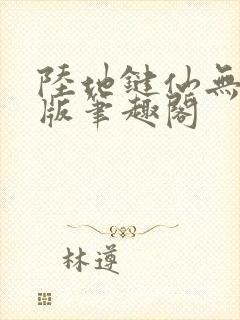 陸地鍵仙無
版筆趣閣
林遵